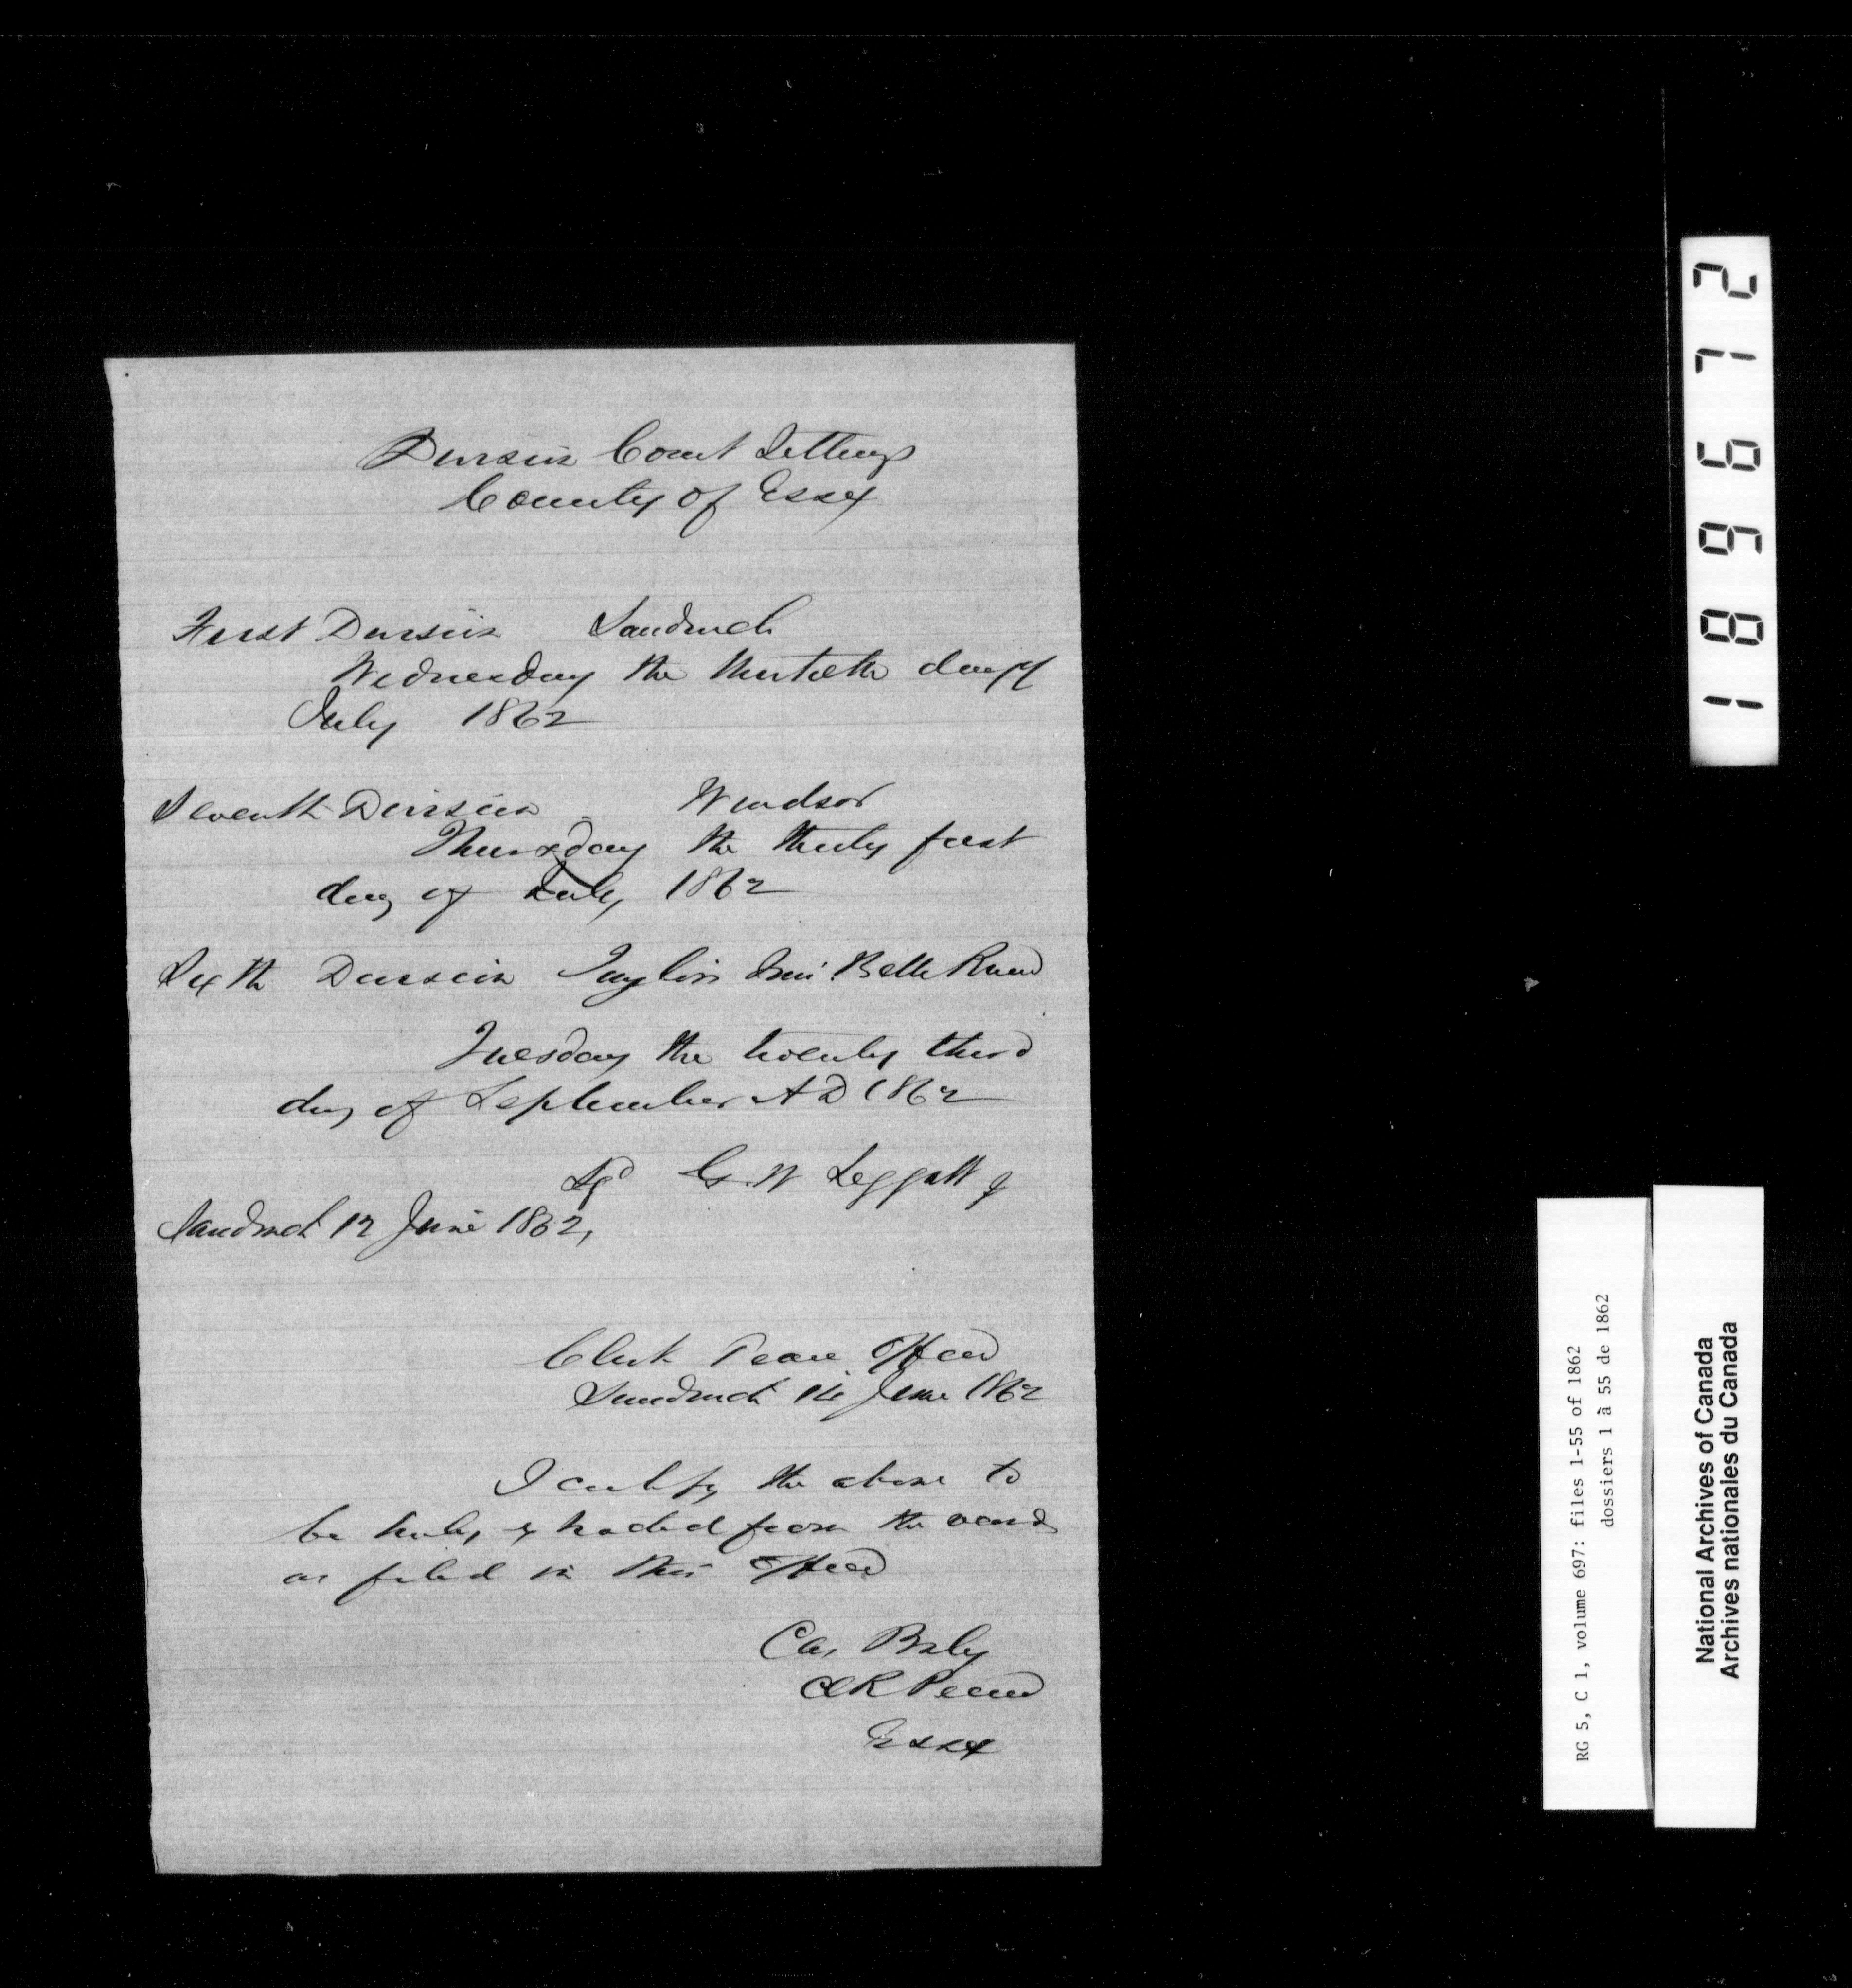 Division Court Sittings
County of Essex
First Division Sandwich
Wednesday the thirtieth day of
July 1862
Seventh Division Windsor
Thursday the thirty first
day of July 1862
Sixth Division Taylors Inn Belle River
Tuesday the twenty third
day of September AD 1862
Sgd G. W Leggatt J
Sandwich 12 June 1862,
Clerk Peace Office
Sandwich June 1862
I certify the above to
be truly extracted from the
as filed in this Office
Chs Baby
Clk Peace
Essex
189672
RG 5, C 1, volume 697: files 1-55 of 1862
dossiers 1 à 55 de 1862
National Archives of Canada
Archives nationales du Canada